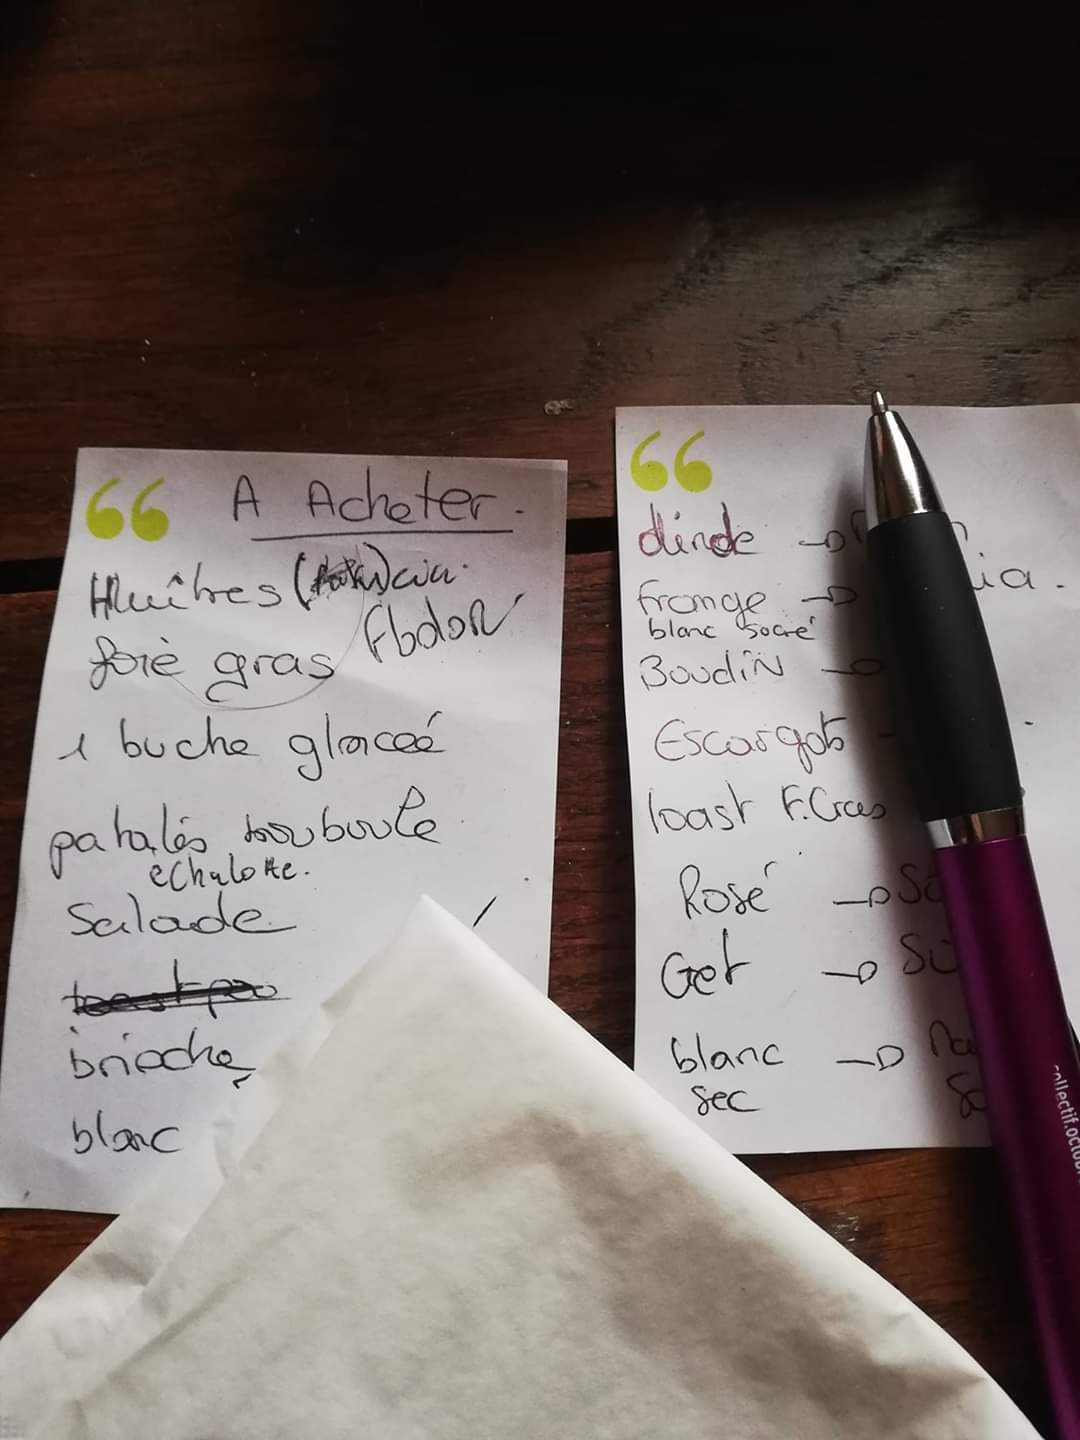 A Acheter.
Huîtres
foie gras
1 buche glaceé
echalotte.
Salade
brioche
blanc
dinde
fromge
blanc socré
Boudin
Escargots
toast F.Gras
Rosé
Get
blanc
sec
collectif.octob